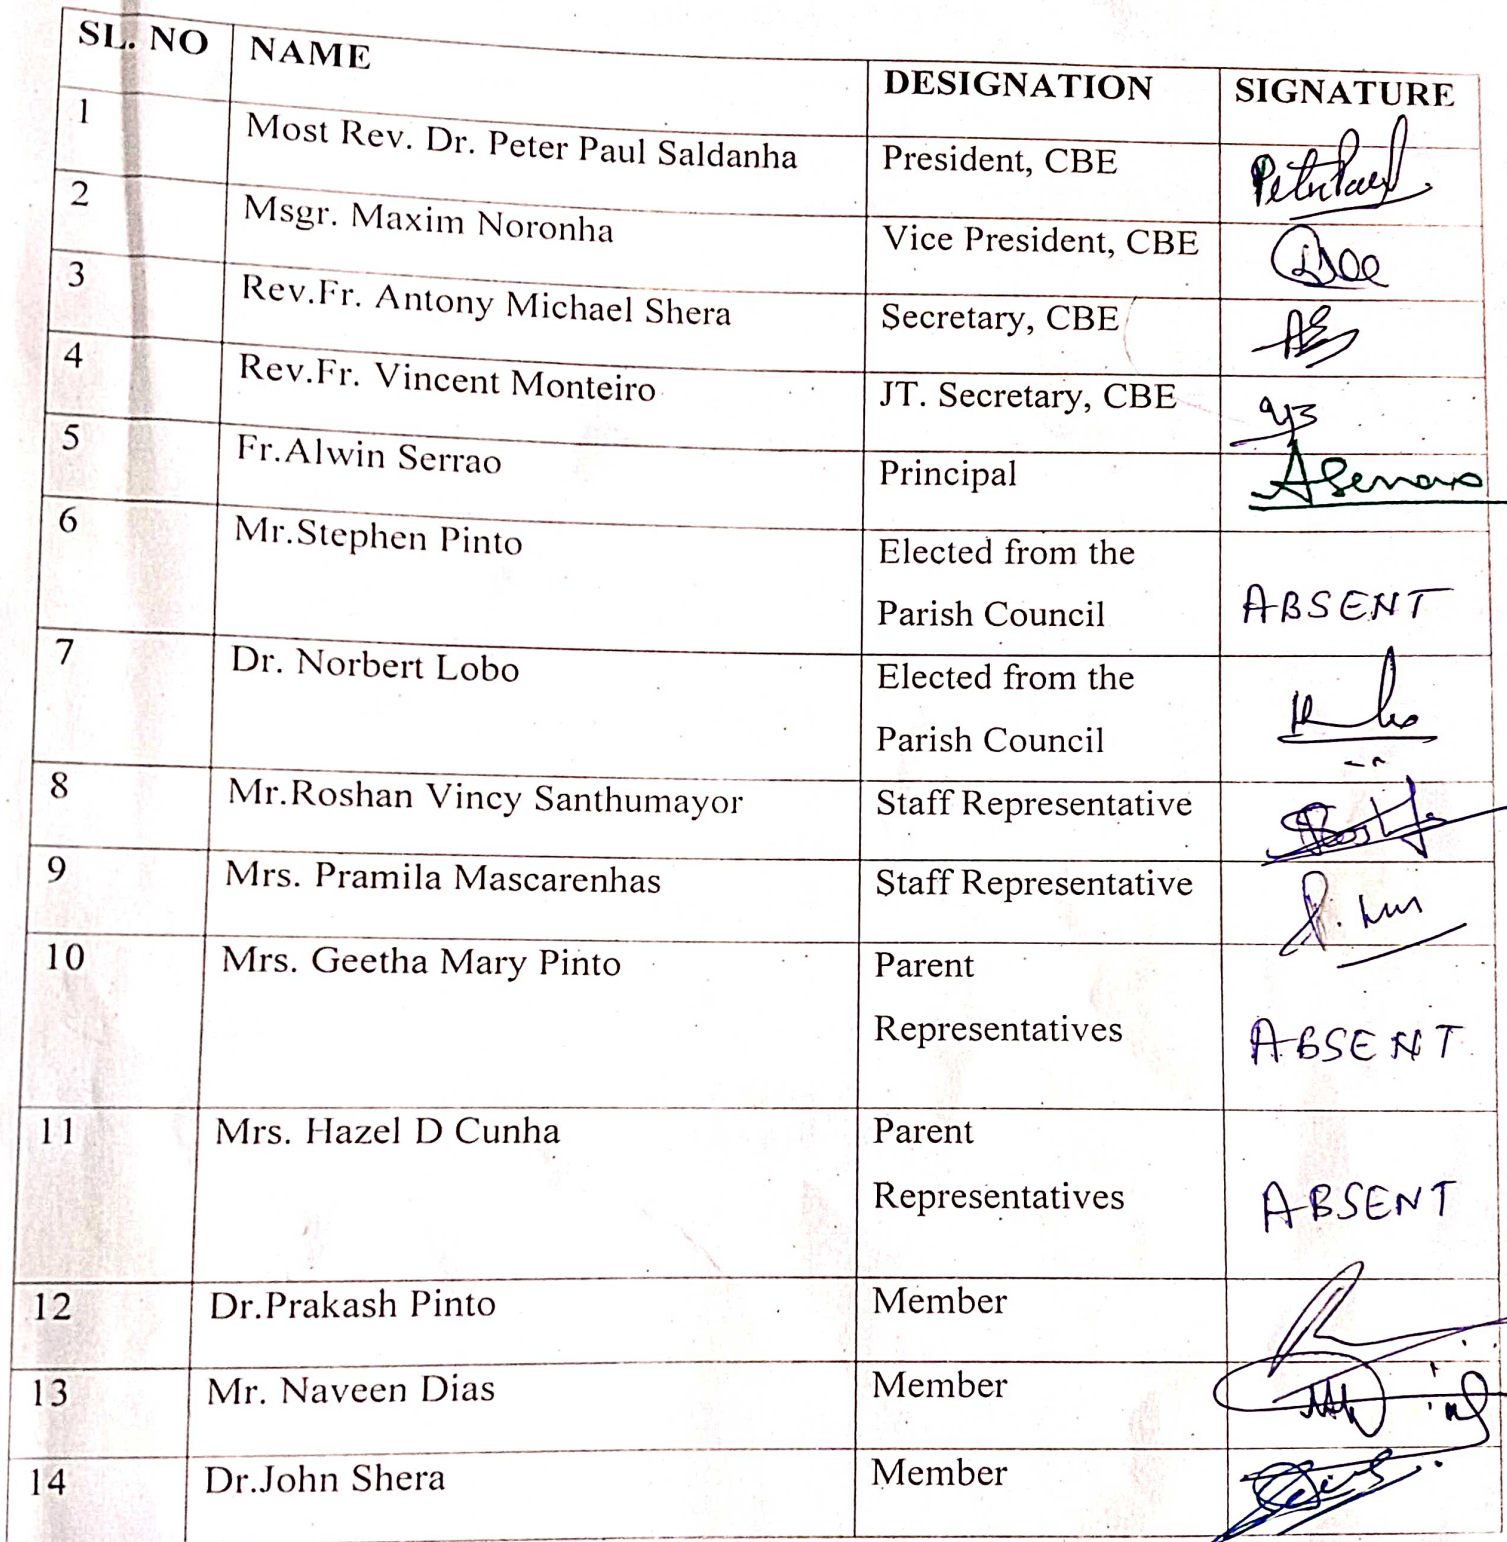 SL. NO NAME DESIGNATION SIGNATURE
1 Most Rev. Dr. Peter Paul Saldanha President, CBE
2 Msgr. Maxim Noronha Vice President, CBE
3 Rev.Fr. Antony Michael Shera Secretary, CBE
4 Rev.Fr. Vincent Monteiro JT. Secretary, CBE
5 Fr.Alwin Serrao Principal
6 Mr.Stephen Pinto Elected from the
Parish Council ABSENT
7 Dr. Norbert Lobo Elected from the
Parish Council
8 Mr.Roshan Vincy Santhumayor Staff Representative
9 Mrs. Pramila Mascarenhas Staff Representative
10 Mrs. Geetha Mary Pinto Parent
Representatives ABSENT
11 Mrs. Hazel D Cunha Parent
Representatives ABSENT
12 Dr.Prakash Pinto Member
13 Mr. Naveen Dias Member
14 Dr.John Shera Member